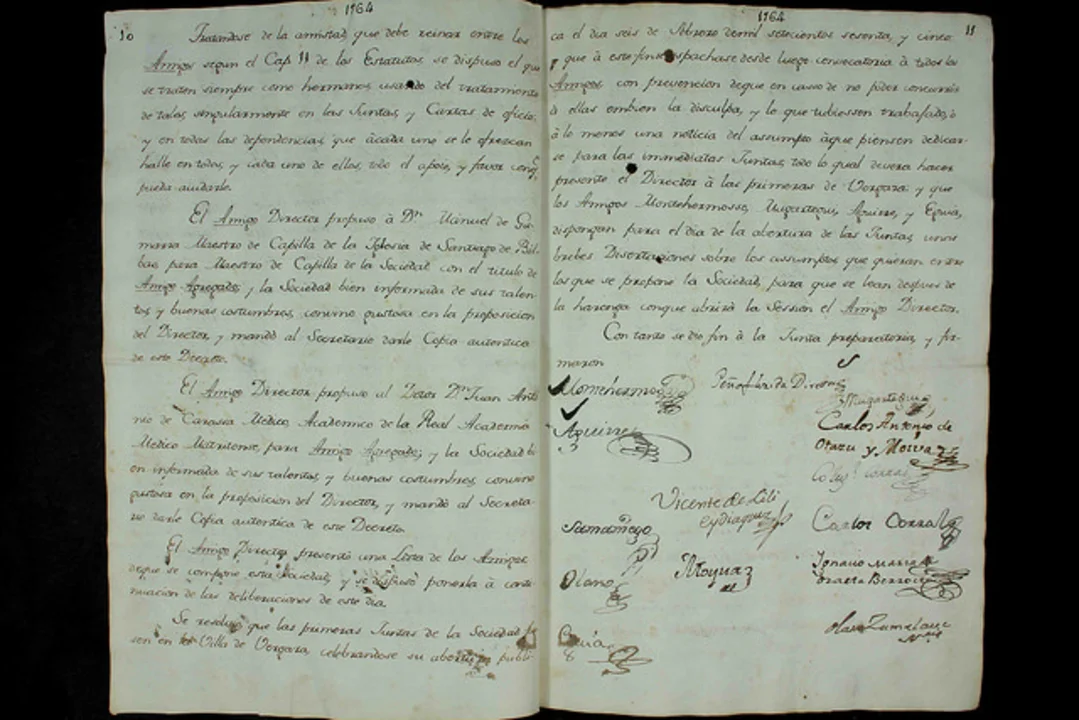 1764
10
Tratandose de la amistad, que debe reinar entre los
Amigos segun el Cap. 11 de los Estatutos, se dispuso el que
se traten siempre como hermanos, usando del tratamiento
de tales, singularmente en las Juntas, y Cartas de oficio;
y en todas las dependencias, que à cada uno se le ofrescan
halle en todos, y cada uno de ellos, todo el apoio, y favor conq.
pueda aiudarle.
El Amigo Director propuso à Dn. Manuel de Ga-
maria Maestro de Capilla de la Iglesia de Santiago de Bil-
bao, para Maestro de Capilla de la Sociedad con el titulo de
Amigo Agregado; y la Sociedad bien informada de sus talen-
tos, y buenas costumbres, convino gustosa en la proposicion
del Director, y mandó al Secretario darle Copia autentica
de este Decreto.
El Amigo Director propuso al Dotor Dn. Juan Anto
nio de Carasa Medico, Academico de la Real Academia
Medico Matritense, para Amigo Agregado; y la Sociedad bi
en informada de sus talentos, y buenas costumbres, convino
gustosa en la proposicion del Director, y mandó al Secreta-
rio darle Copia autentica de este Decreto.
El Amigo Director presentó una Lista de los Amigos,
deque se compone esta Sociedad, y se dispuso ponerla à conti-
nuacion de las deliberaciones de este dia.
Se resolvió que las primeras Juntas de la Sociedad fue
sen en la Villa de Vergara, celebrandose su abertura publi-
1764
11
ca el dia seis de Febrero demil setecientos sesenta, y cinco
y que à este fin se despachase desde luego convocatoria à todos los
Amigos, con prevencion deque en casso de no poder concurrir
à ellas embien la disculpa, y lo que tubiessen trabajado, ò
à lo menos una noticia del assumpto àque piensen dedicar-
se para las immediatas Juntas, todo lo qual devera hacer
presente el Director à las primeras de Vergara: y que
los Amigos Montehermosso, Mugartegui, Aguirre, y Eguia,
dispongan para el dia de la abertura de las Juntas, unas
brebes Disertaciones sobre los assumptos, que quieran entre
los que se propone la Sociedad, para que se lean despues de
la harenga conque abrirà la Session el Amigo Director.
Con tanto se dio fin à la Junta preparatoria, y fir-
maron
Montehermoso
Peñaflorida Director
Mugartegui
Aguirre
Carlos Antonio de
Otazu y Moyua
Vicente de Lili
Ydiaquez
Samaniego
Carlos Corral
Olano
Moyua
Ignacio Maria
Eguia
Olaso Zumalave